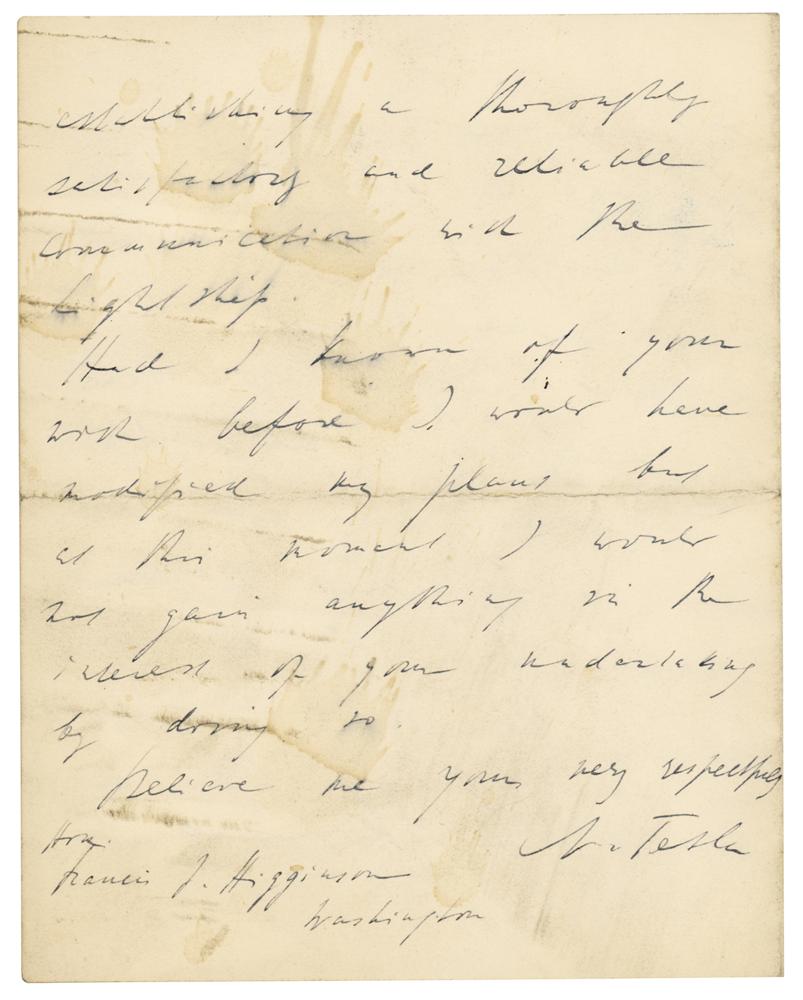 establishing a thoroughly
satisfactory and reliable
communication with the
Light ship.
Had I known of your
wish before I would have
modified my plans but
at this moment I would
not gain anything in the
interest of your undertaking
by doing so.
Believe me yours very respectfully
N. Tesla
Hon.
Francis J. Higginson
Washington